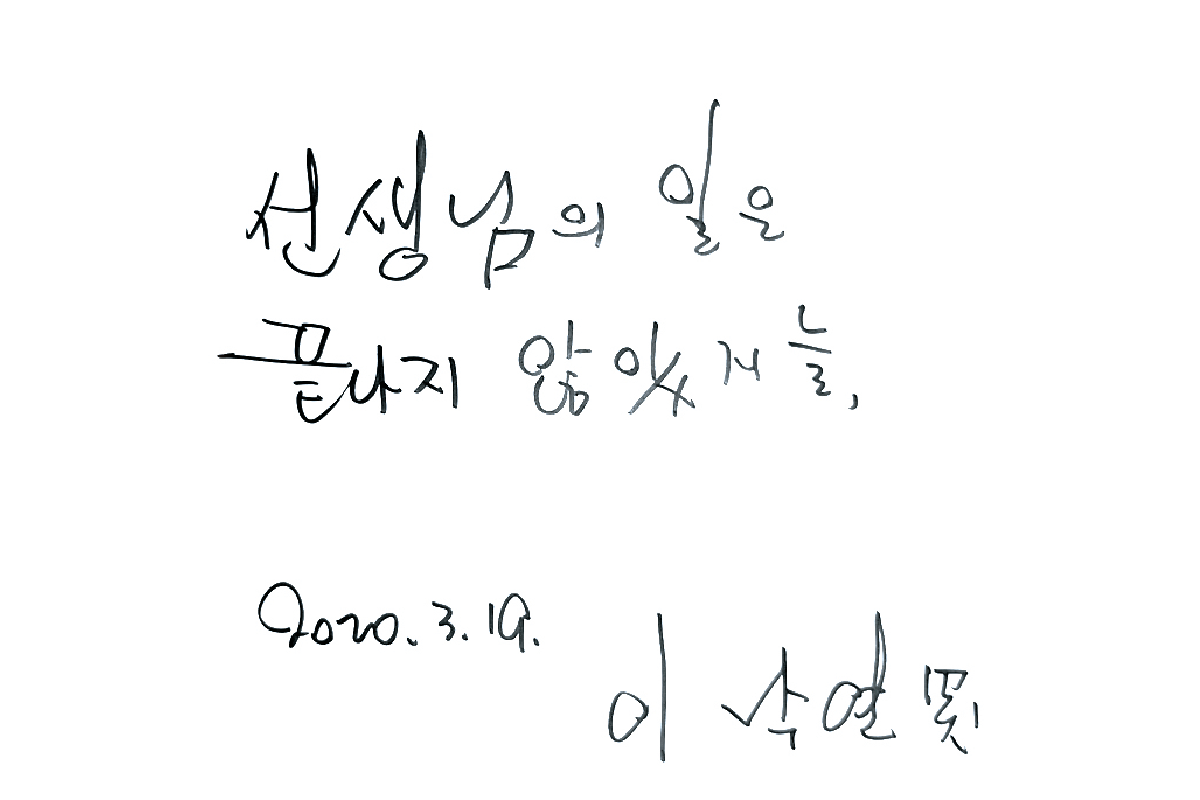 선생님의 일은
끝나지 않았거늘,
2020. 3. 19.
이 수열